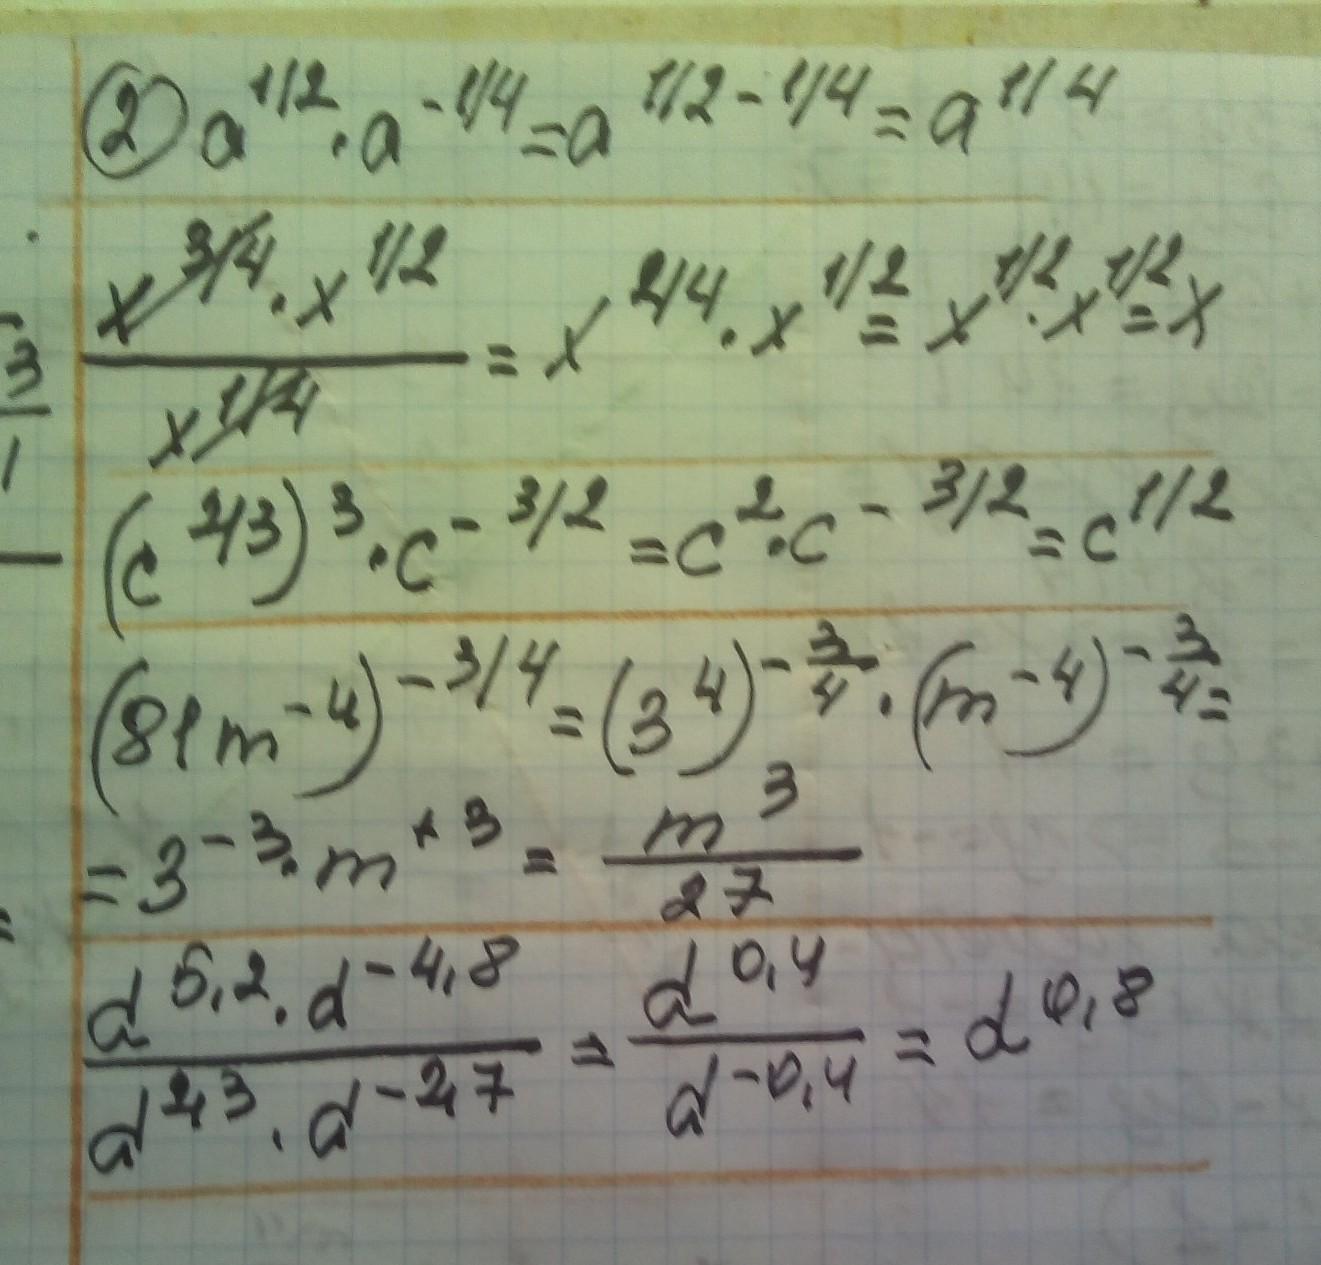 ② a^1/2 · a^-1/4 = a^1/2-1/4 = a^1/4
x^3/4 · x^1/2 / x^1/4 = x^2/4 · x^1/2 = x^1/2 · x^1/2 = x
(c^2/3)^3 · c^-3/2 = c^2 · c^-3/2 = c^1/2
(81m^-4)^-3/4 = (3^4)^-3/4 · (m^-4)^-3/4 =
= 3^-3 · m^+3 = m^3 / 27
d^5,2 · d^-4,8 / d^2,3 · d^-2,7 = d^0,4 / d^-0,4 = d^0,8